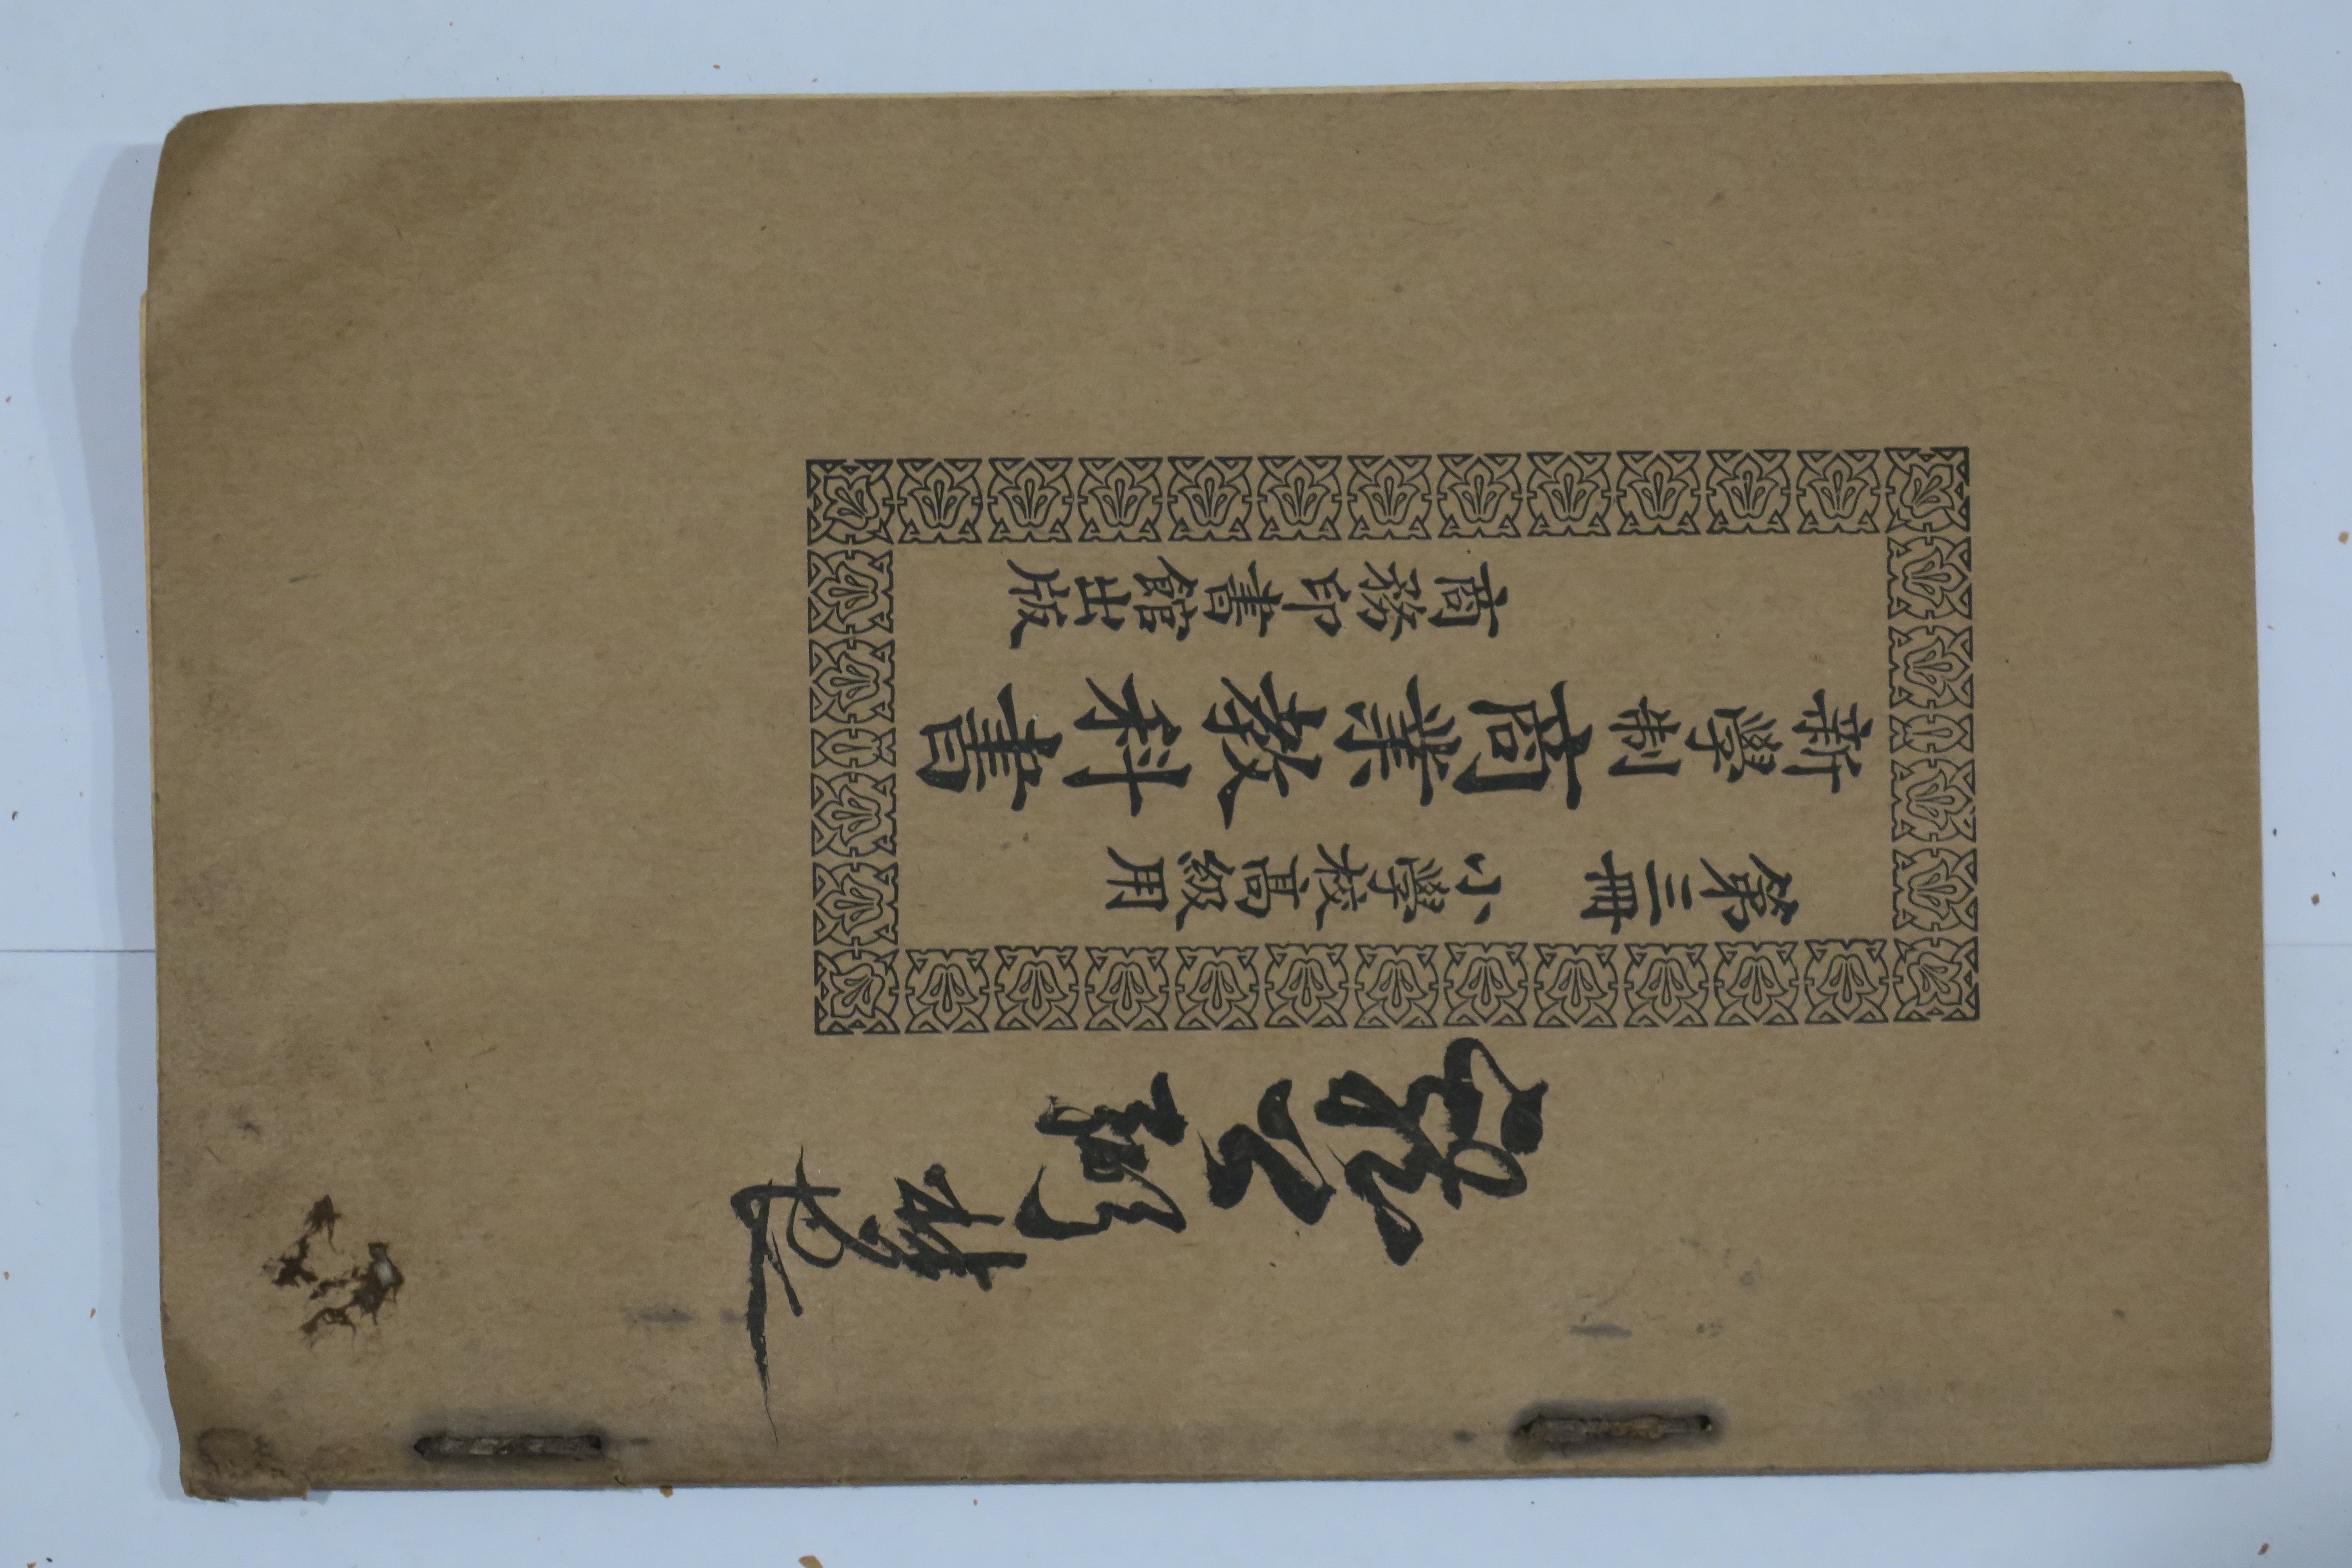 第三冊　小學校高級用
新學制商業教科書
商務印書館出版